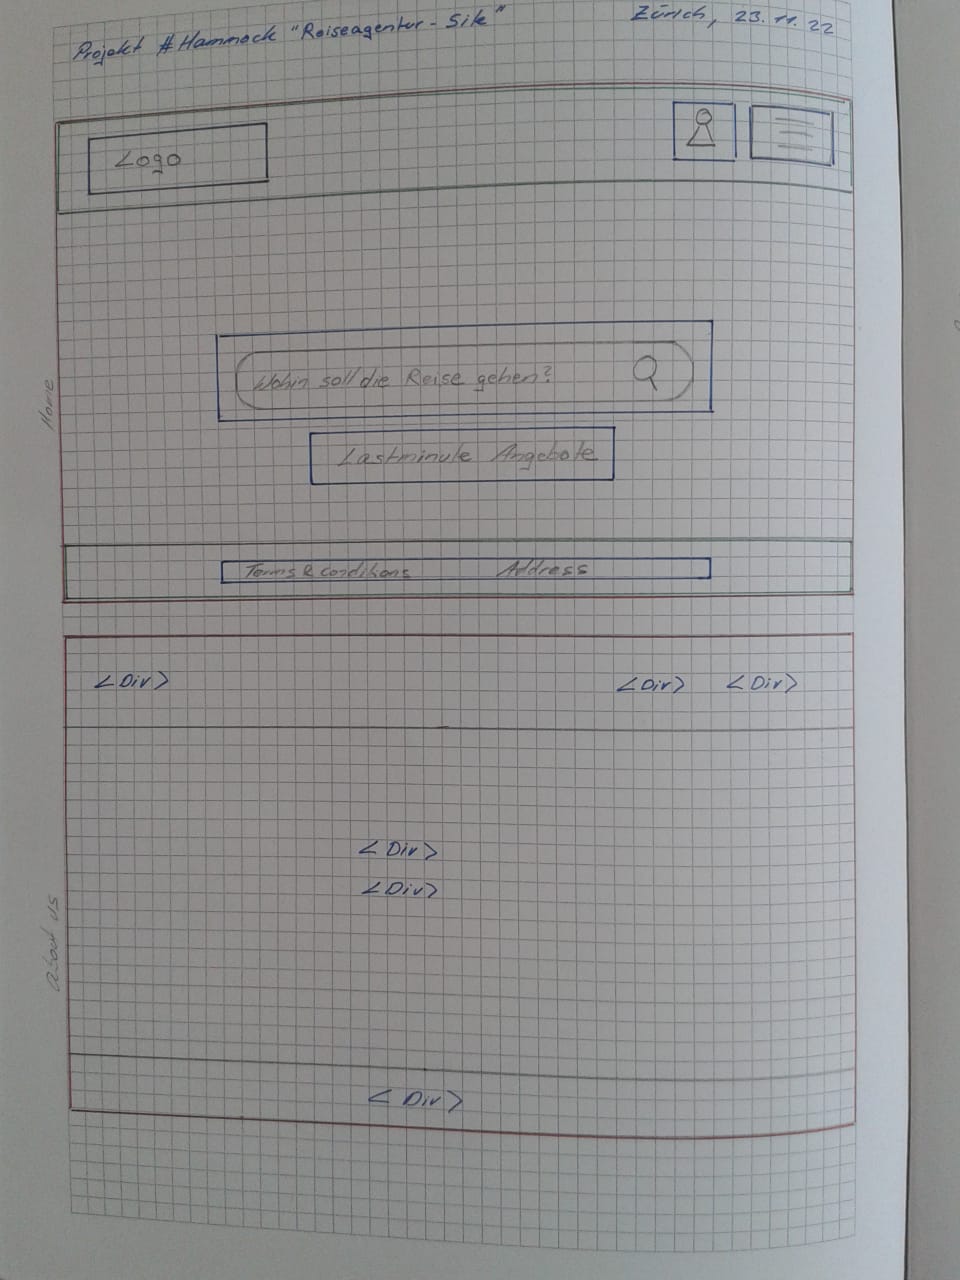 Projekt #Hammock "Reiseagentur - Sik"
Zürich, 23.11.22
Logo
Home
Wohin soll die Reise gehen?
Lastminute Angebote
Terms & conditions Address
<Div> <Div> <Div>
<Div>
<Div>
About us
<Div>